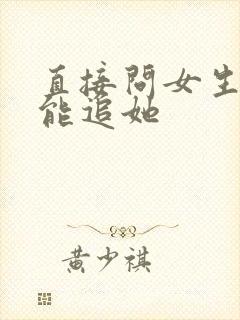 直接問女生
能追她
黄少祺